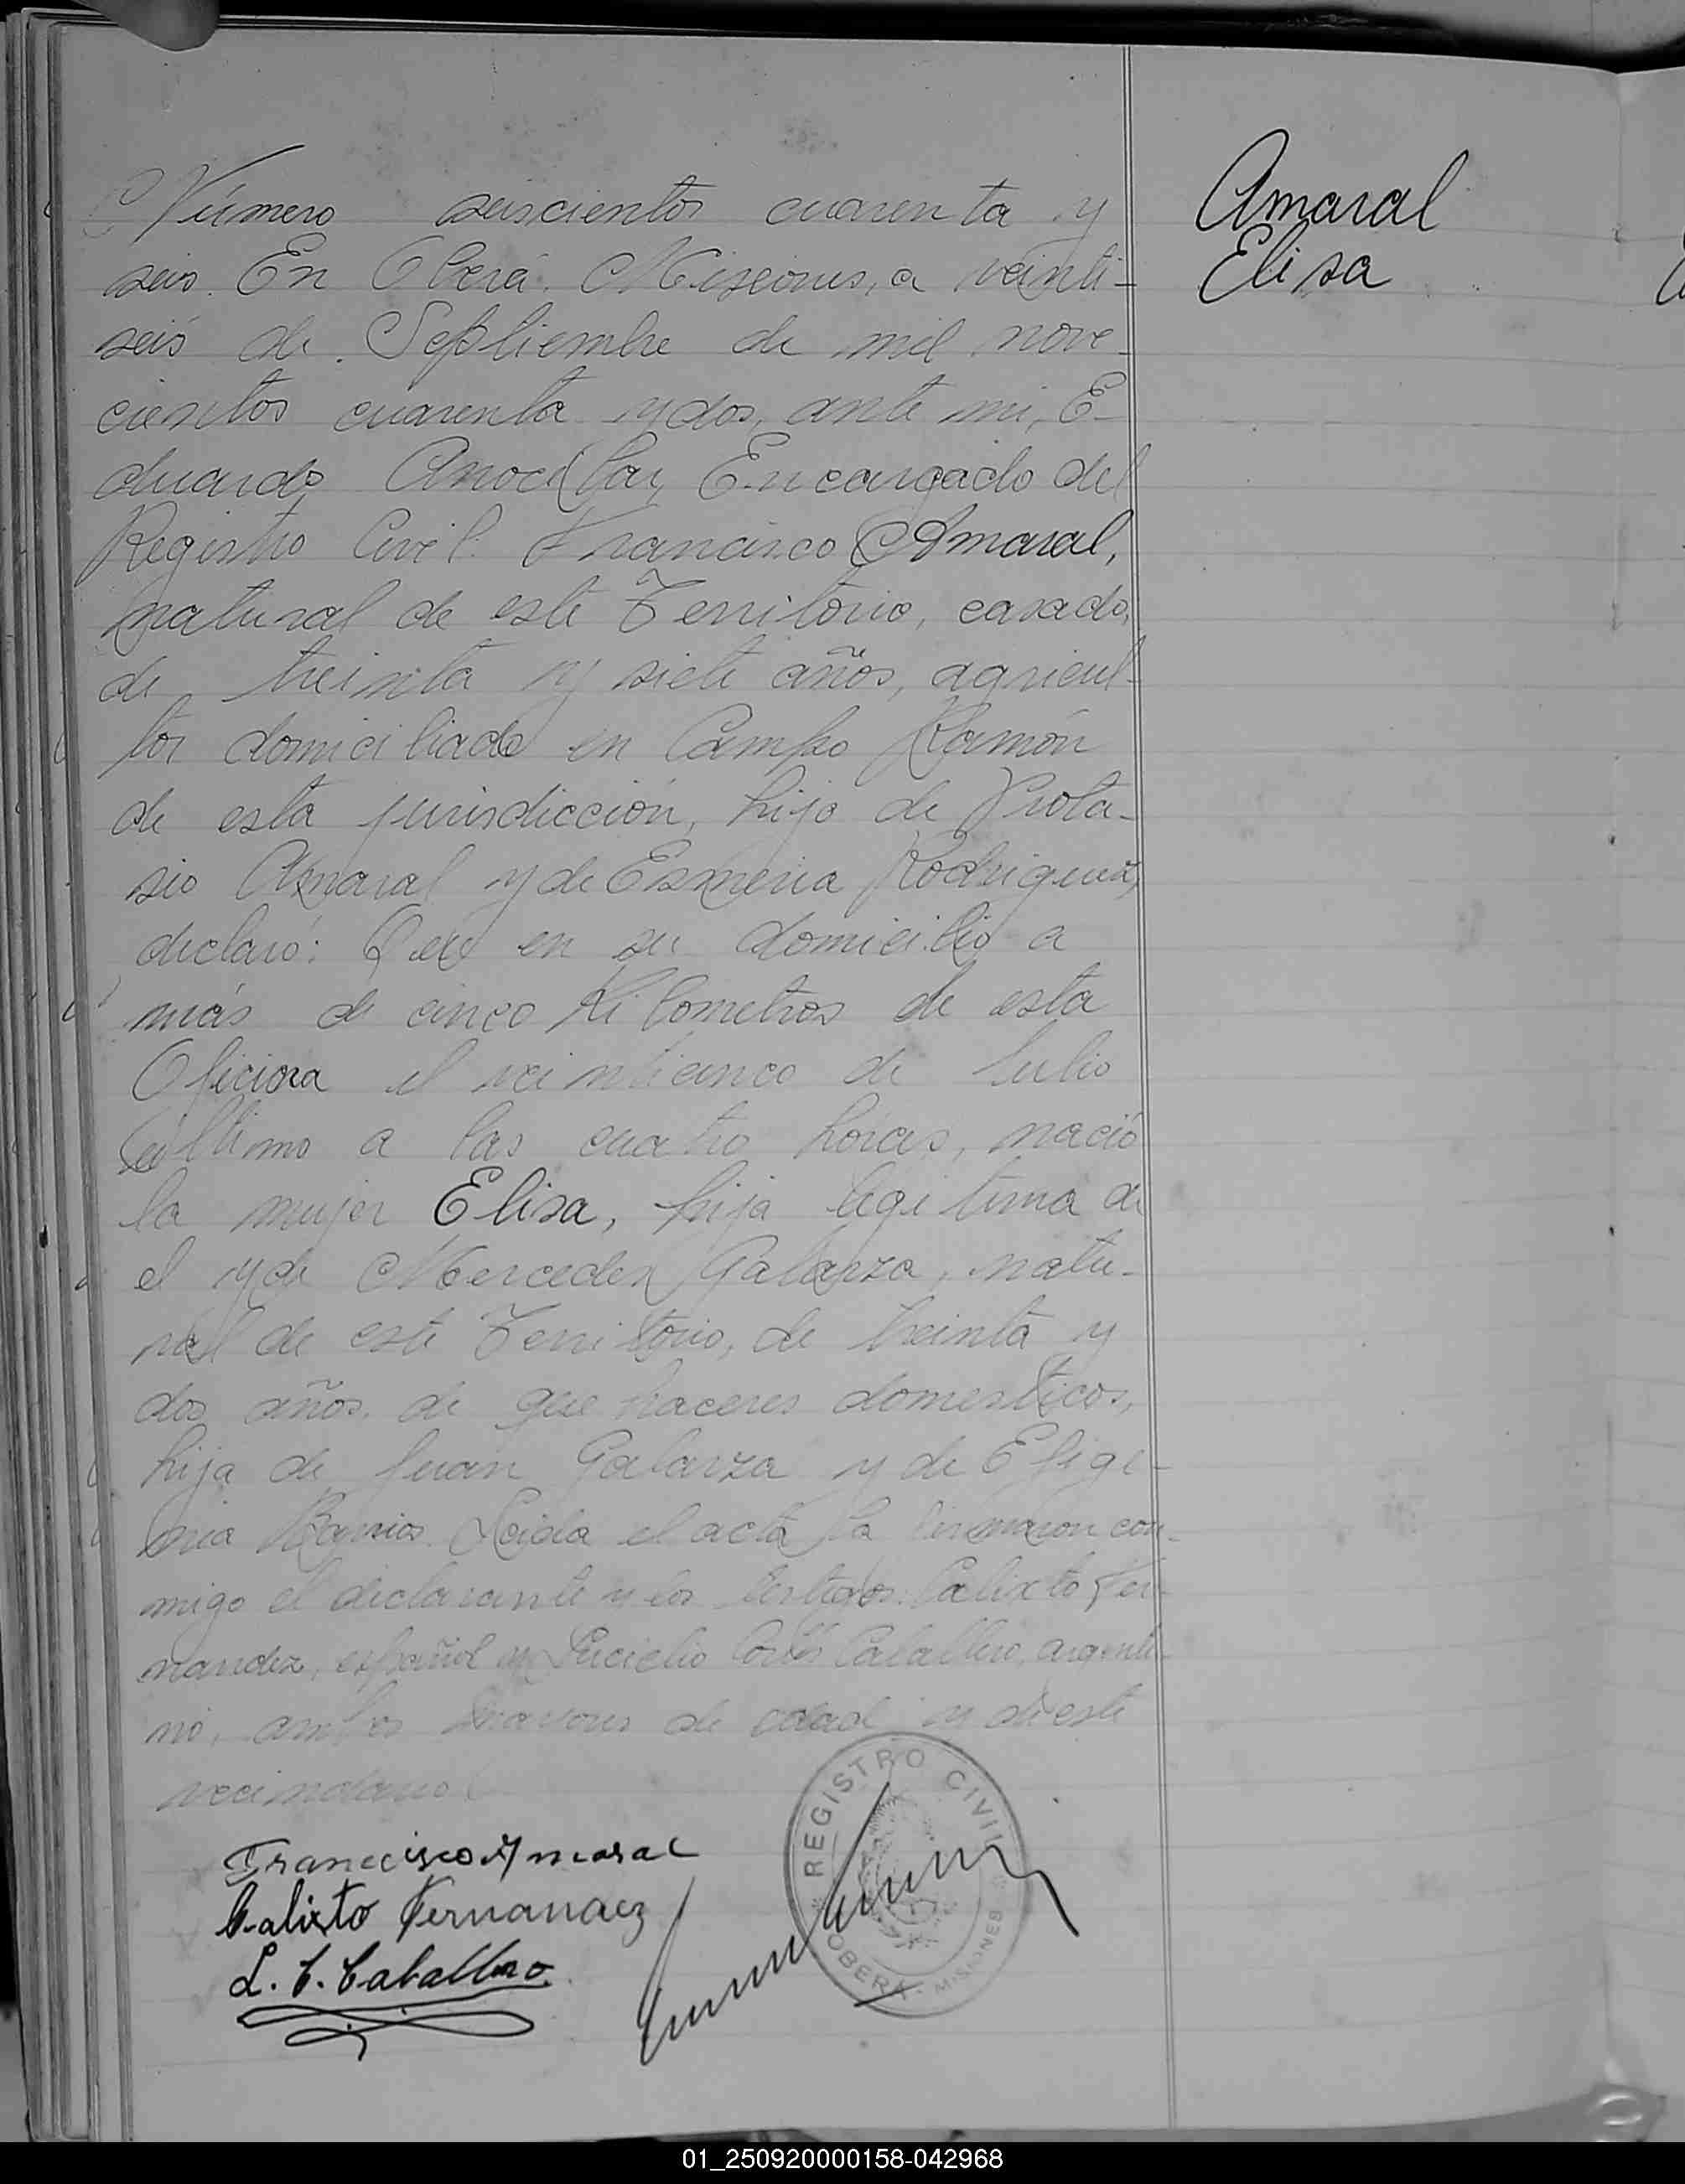 Número seiscientos cuarenta y
seis. En Oberá, Misiones, a veinti-
seis de Septiembre de mil nove-
cientos cuarenta y dos, ante mi, E-
duardo Encargado del
Registro Civil. Francisco Amaral,
natural de este Territorio, casado,
de treinta y siete años, agricul-
tor domiciliado en Campo Ramón
de esta jurisdicción, hijo de Prota-
sio Amaral y de Esmeria Rodriguez,
declaró: Que en su domicilio a
más de cinco kilometros de esta
Oficina el veinticinco de Julio
último a las cuatro horas, nació
la mujer Elisa, hija legitima de
el y de Mercedes Galarza, natu-
ral de este Territorio, de treinta y
dos años, de que haceres domesticos,
hija de Juan Galarza y de Efige-
nia Barrios. Leida el acta la firmaron con-
migo el declarante y los testigos: Calixto Fer-
nandez, español y Caballero, argenti-
no, ambos mayores de edad y de este
vecindario.
Francisco Amaral
Calixto Fernandez
L. C. Caballero
REGISTRO CIVIL
OBERA - MISIONES
Amaral
Elisa
01_250920000158-042968